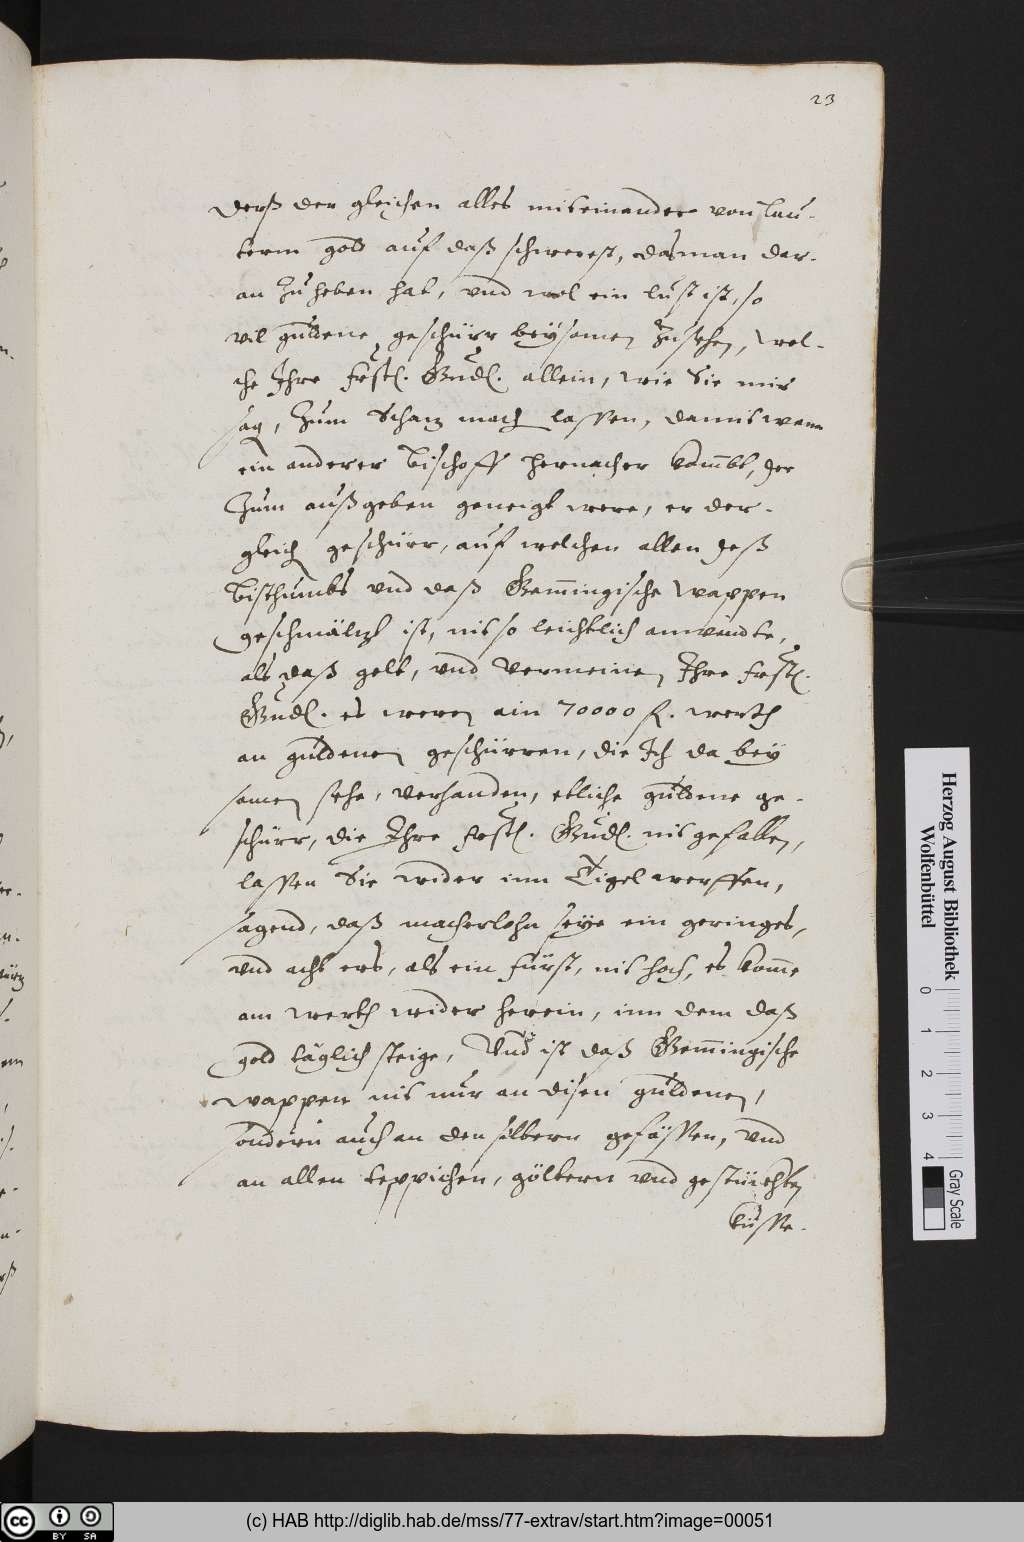 23
derß der gleichen alles miteinander von lau-
term gold auf daß schwerest, das man dar-
an zu heben hat, vnd wol ein lust ist, so
vil guldene geschürr beysamen zusehen, wel-
che Ihre frstl. Gndl. allein, wie Sie mir
sag, zum Schaz mach lassen, damit wann
ein anderer Bischoff hernacher kombt, der
zum außgeben geneigt were, er der-
gleich geschürr, auf welchen allen deß
Bisthumbs vnd daß Gemingische wappen
geschmälzt ist, nit so leichtlich anwendte,
als daß gelt, vnd vermeinen Ihre frstl.
Gndl. es weren ain 70000 fl. werth
an guldenen geschürren, die Ich da bey
samen sehe, verhanden, etliche guldene ge-
schürr, die Ihre frstl. Gndl. nit gefallen,
lassen Sie wider inn Tigel werffen,
sagend, daß macherlohn seye ein geringes,
vnd acht ers, als ein fürst, nit hoch, es komme
am werth wider herein, inn dem daß
gold täglich steige, Vnd ist daß Gemingische
wappen nit nur an disen guldenen,
sondern auch an den silbern gefässen, vnd
an allen teppichen, göltern vnd gestückten
küsse-
Herzog August Bibliothek
Wolfenbüttel
0 1 2 3 4
Gray Scale
cc BY SA
(c) HAB http://diglib.hab.de/mss/77-extrav/start.htm?image=00051